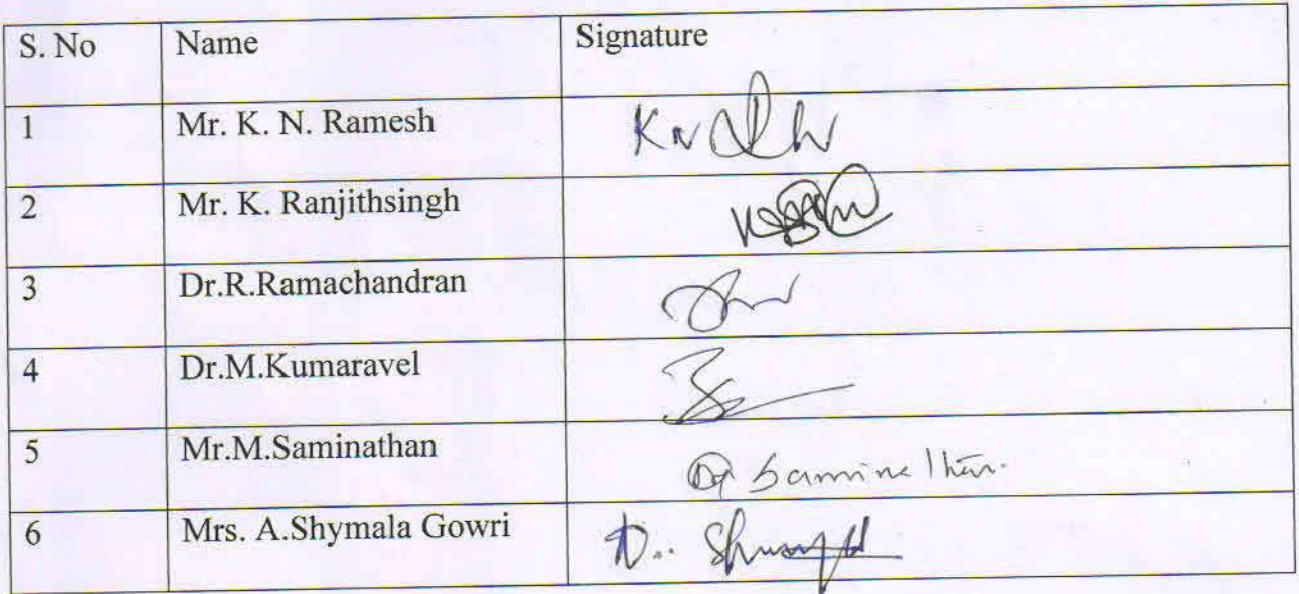 S. No Name Signature
1 Mr. K. N. Ramesh
2 Mr. K. Ranjithsingh
3 Dr.R.Ramachandran
4 Dr.M.Kumaravel
5 Mr.M.Saminathan Saminathan.
6 Mrs. A.Shymala Gowri